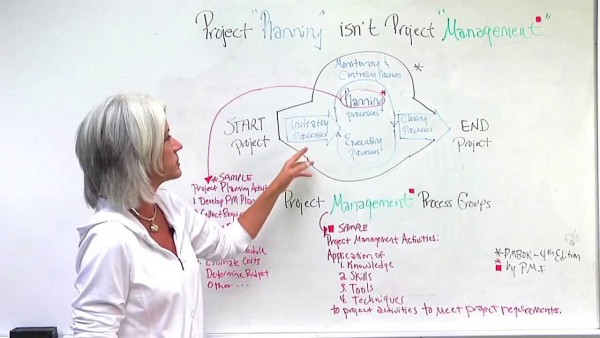 Project "Planning" isn't Project "Management"
Monitoring &
Controlling Processes *
Planning *
Processes
START
Project
Initiating
Processes
Executing
Processes
Closing
Processes
END
Project
Project Management Process Groups
* SAMPLE
Project Planning Activit
1. Develop PM Plan
Collect Requ
Estimate Costs
Determine Budget
Other ...
SAMPLE
Project Management Activities:
Application of
1. Knowledge
2. Skills
3. Tools
4. Techniques
to project activities to meet project requirements.
* PMBOK - 4th Edition
* by PMI